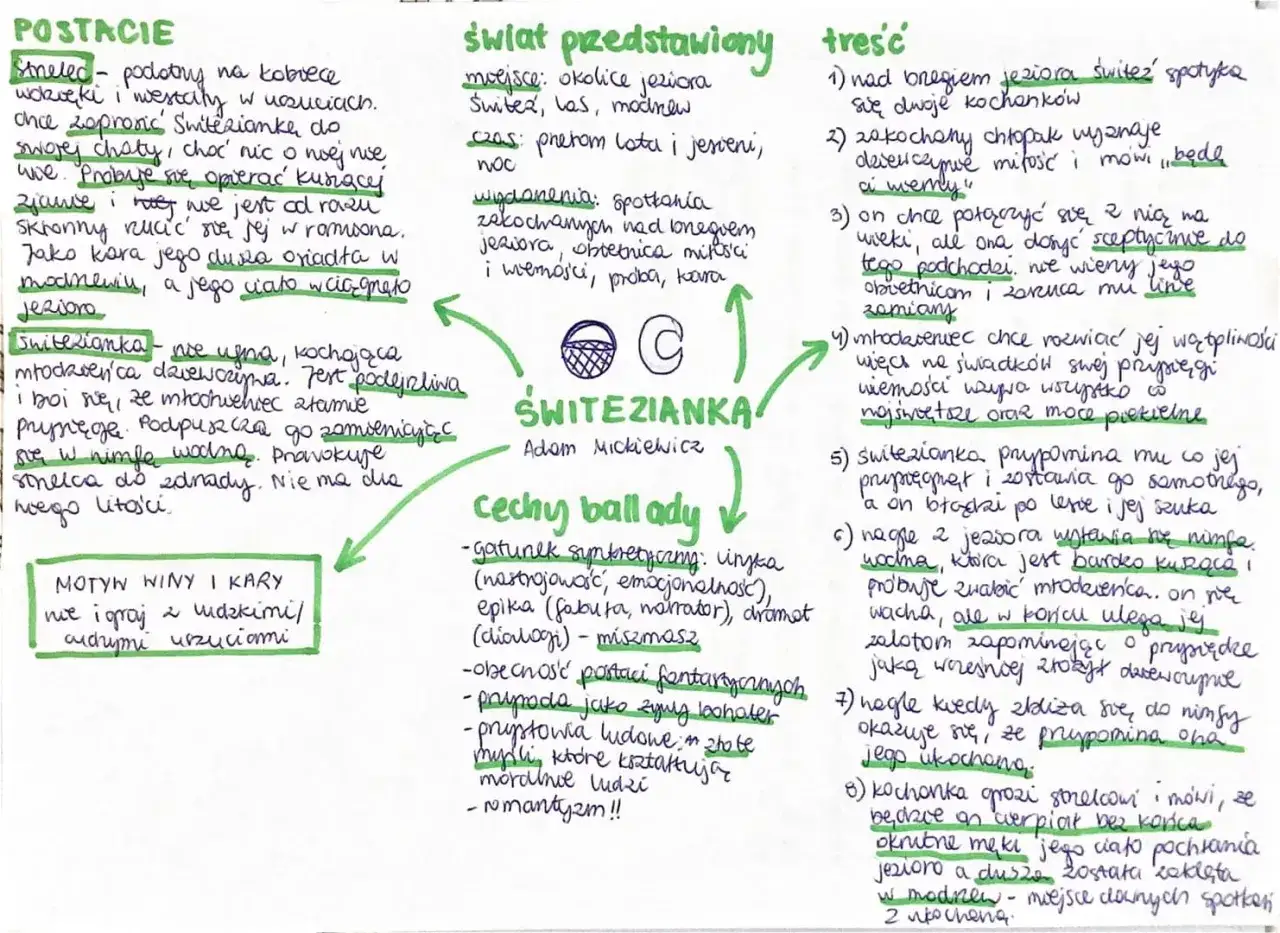 POSTACIE
strzelec - podatny na kobiece
wdzięki i niestały w uczuciach.
chce zaprosić Świteziankę do
swojej chaty, choć nic o niej nie
wie. Próbuje się opierać kuszącej
zjawie i nie jest od razu
skłonny rzucić się jej w ramiona.
Jako kara jego dusza osiadła w
modrzewiu, a jego ciało wciągnęło
jezioro
świtezianka - nie ufna, kochająca
młodzieńca dziewczyna. Jest podejrzliwa
i boi się, że młodzieniec złamie
przysięgę. Podpuszcza go zamieniając
się w nimfę wodną. Prowokuje
strzelca do zdrady. Nie ma dla
niego litości.
MOTYW WINY I KARY
nie igraj z ludzkimi/
cudzymi uczuciami
świat przedstawiony
miejsce: okolice jeziora
Świteź, las, modrzew
czas: przełom lata i jesieni,
noc
wydarzenia: spotkania
zakochanych nad brzegiem
jeziora, obietnica miłości
i wierności, próba, kara
ŚWITEZIANKA
Adam Mickiewicz
cechy ballady
-gatunek synkretyczny: liryka
(nastrojowość, emocjonalność),
epika (fabuła, narrator), dramat
(dialogi) - miszmasz
-obecność postaci fantastycznych
- przyroda jako żywy bohater
- przysłowia ludowe: złote
myśli, które kształtują
moralnie ludzi
- romantyzm!!
treść
1) nad brzegiem jeziora świteź spotyka
się dwoje kochanków
2) zakochany chłopak wyznaje
dziewczynie miłość i mówi „będę
ci wierny"
3) on chce połączyć się z nią na
wieki, ale ona dosyć sceptycznie do
tego podchodzi. nie wierzy jego
obietnicom i zarzuca mu inne
zamiary
4) młodzieniec chce rozwiać jej wątpliwości
więc na świadków swej przysięgi
wierności wzywa wszystko co
najświętsze oraz moce piekielne
5) świtezianka przypomina mu co jej
przysięgnął i zostawia go samotnego,
a on błądzi po lesie i jej szuka
6) nagle z jeziora wyławia się nimfa
wodna, która jest bardzo kusząca i
próbuje zwabić młodzieńca. on się
wacha, ale w końcu ulega jej
zalotom zapominając o przysiędze
jaką wcześniej złożył dziewczynie
7) nagle kiedy zbliża się do nimfy
okazuje się, że przypomina ona
jego ukochaną.
8) kochanka grozi strzelcowi i mówi, że
będzie on cierpiał bez końca
okrutne męki jego ciało pochłania
jezioro a dusza została zaklęta
w modrzew - miejsce dawnych spotkań
z ukochaną.